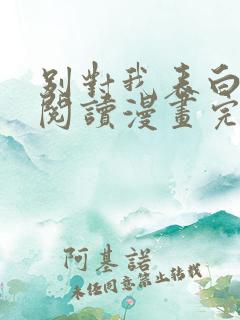 别對我表白
閱讀漫畫完
阿基諾
未经同意禁止转载